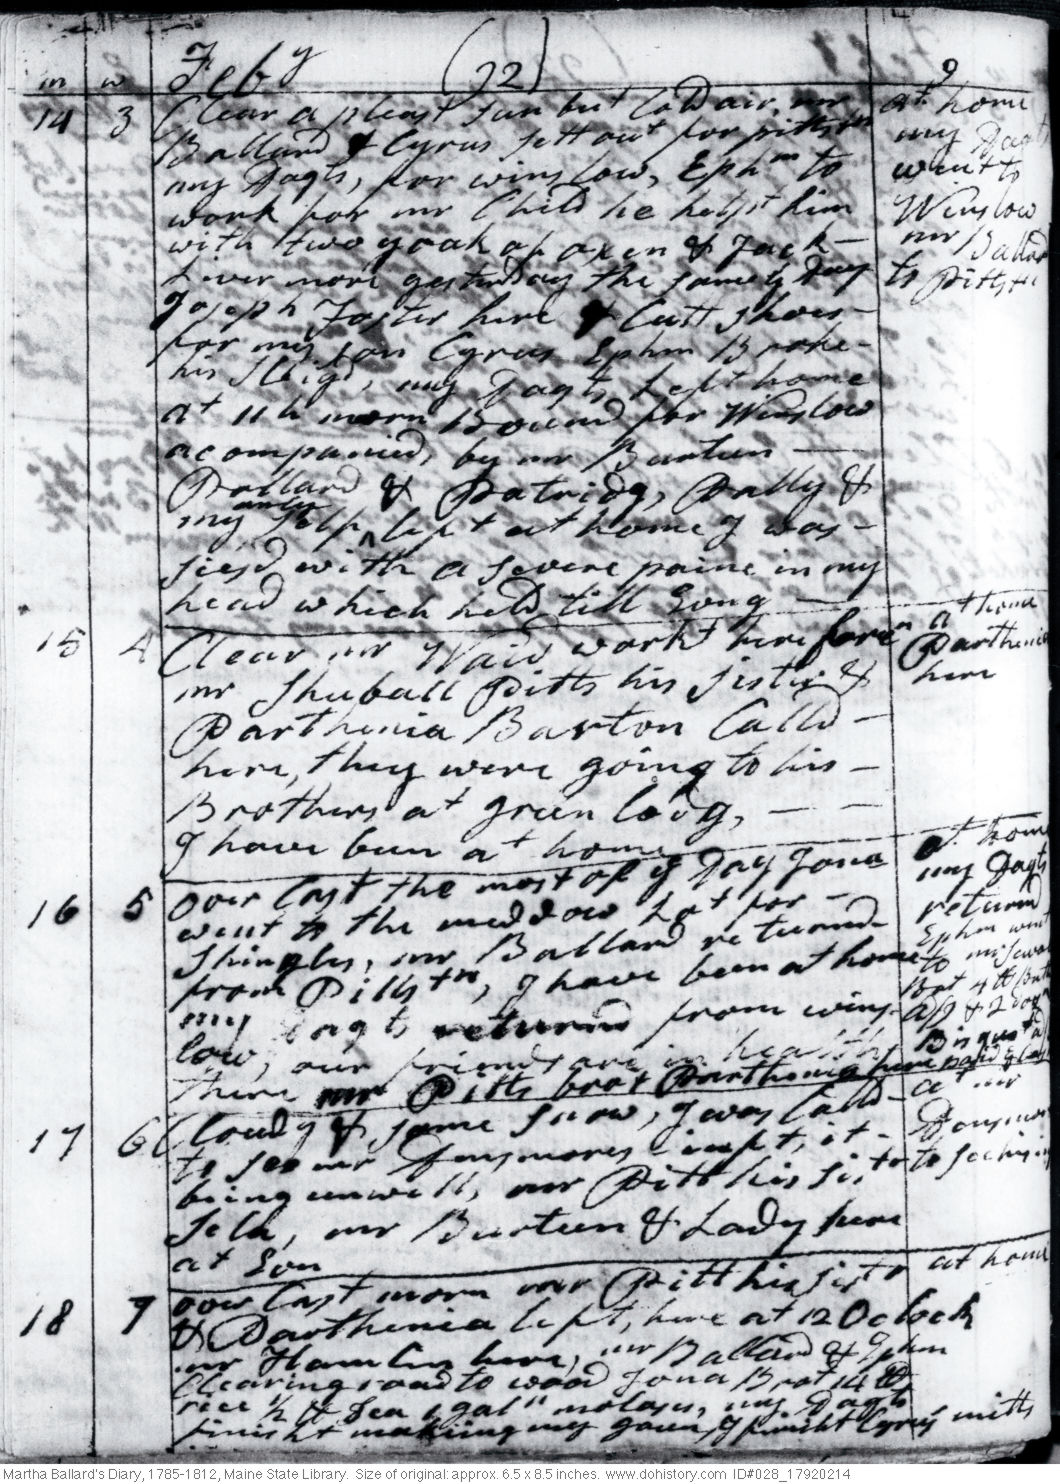 m w Feby (92) 9
14 3 Clear a pleast sun but Cold air. mr
Ballard & Cyrus sett out for pittston
my Dagts, for winslow, Ephm to
work for mr Child he helpt him
with two yoak of oxen & Jack
more yesterday the same Day
Joseph Foster here & Cutt shoes
for my son Cyrus Ephm Broke
his Sleigh, my Dagts left home
at 11 h morn Bound for Winslow
acompanied, by mr Barten
Pollard & Patridg, Dolly &
my self only left at home I was
siesd with a severe paine in my
head which held till Evng
at home
my Dagts
went to
Winslow
mr Ballard
to Pittstn
15 4 Clear, mr Waid workt here foren
mr Shuball Pitts his sister &
Parthenia Barton Calld
here, they were going to his
Brothers at green lodg,
I have been at home
at home
Parthenia
here
16 5 over Cast the most of ye Day Jona
went to the meddow Lot for
Shingles, mr Ballard returned
from Pittstn, I have been at home
my Dagts returnd from wins
low, our friends are in health
there mr Pitts brot Parthenia here
at home
my Dagts
returnd
Ephm went
to mr
Bot 4 lb
& 2 doz
Bisquet
17 6 Cloudy & some snow, I was Calld
to see mr Densmores infant, it
being unwell, mr Pitt his sister
Sela, mr Barteen & Lady here
at Evn
at mr
Densmors
to see his
18 7 over Cast morn mr Pitt his sister
& Parthenia left, here at 12 Oclock
mr Hamlin here, mr Ballard & Ephm
Clearing road to wood Jona Brot 14 lb
rice 1/2 lb Tea 1 galln molases, my Dagts
finisht making my gown, I finisht Cyrus' mitts
at home
Martha Ballard's Diary, 1785-1812, Maine State Library. Size of original: approx. 6.5 x 8.5 inches. www.dohistory.com ID#028_17920214